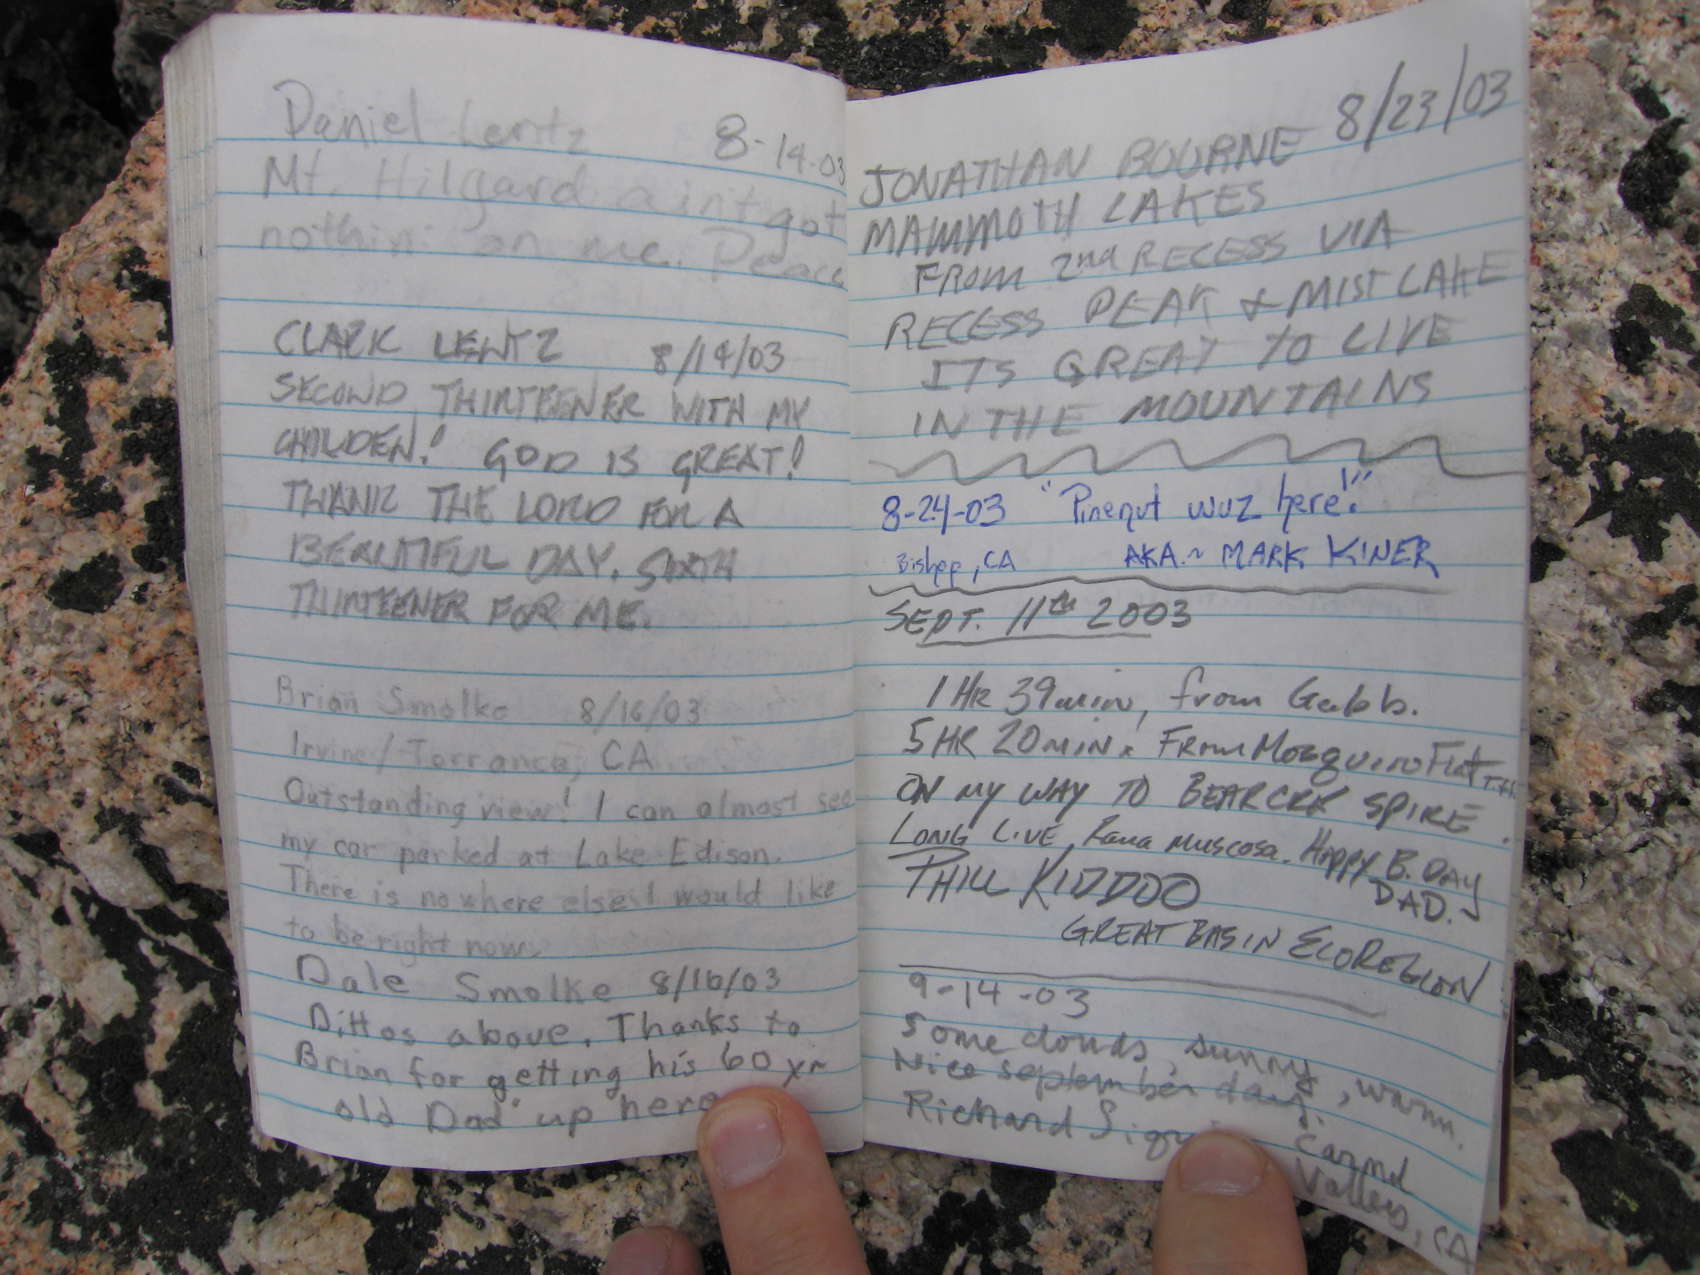 Daniel Lentz 8-14-03
Mt. Hilgard aint got
nothin on me. Peace
CLARK LENTZ 8/14/03
SECOND THIRTEENER WITH MY
CHILDEN! GOD IS GREAT!
THANK THE LORD FOR A
BEAUTIFUL DAY. SIXTH
THIRTEENER FOR ME.
Brian Smolke 8/16/03
Irvine/Torrance, CA
Outstanding view! I can almost see
my car parked at Lake Edison.
There is nowhere else I would like
to be right now.
Dale Smolke 8/16/03
Dittos above. Thanks to
Brian for getting his 60 yr
old Dad up here
8/23/03
JONATHAN BOURNE
MAMMOTH LAKES
FROM 2nd RECESS VIA
RECESS PEAK & MIST LAKE
ITS GREAT TO LIVE
IN THE MOUNTAINS
8-24-03 "Pinenut wuz here!"
Bishop, CA AKA ~ MARK KINER
SEPT. 11th 2003
1 HR 39 min, from Gabb.
5 HR 20 min. FROM Mosquito Flat T.H.
ON MY WAY TO BEARCRK SPIRE.
LONG LIVE Rana Muscosa. Happy B. DAY
DAD.
PHILL KIDDOO
GREAT BASIN ECOREGION
9-14-03
Some clouds, sunny, warm.
Nice september day.
Richard Carmel
Valley, CA